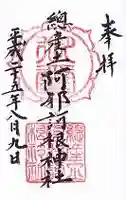 奉拝
總産土阿邪訶根神社
平成二十五年八月九日